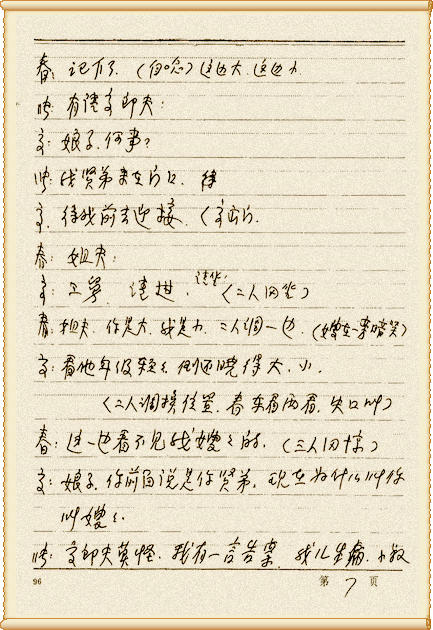 春：记下了，（自念）这边大，这边小
有请 郎夫：
娘子，何事？
我贤弟来在门口，
待我前去迎接，（出门
春：姐夫：
请进，请坐（二人同坐）
春：姐夫，你是大，我是小，二人调一边，（嫂在一旁暗笑）
看他年级轻々倒还晓得大，小．
（二人调换位置，春东看西看，失口叫）
春：这一边看不见我嫂々的，（三人同惊）
娘子，你前面说是你贤弟，现在为什么叫你
叫嫂々．
郎夫莫怪，我有一言告禀，我儿生病，小
96 第 7 页